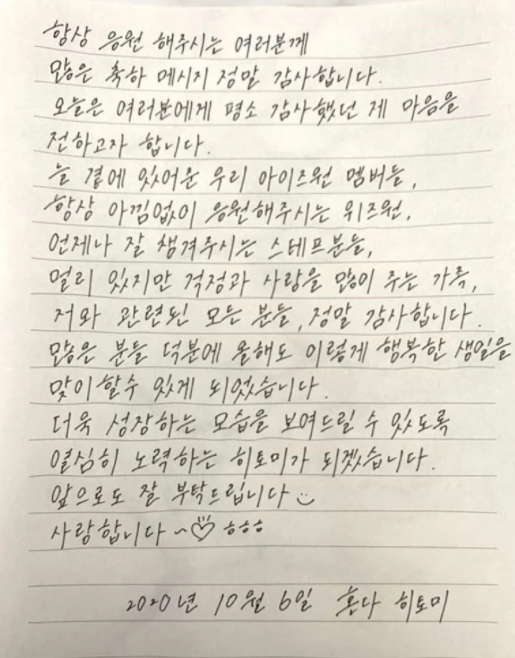 항상 응원 해주시는 여러분께
많은 축하 메시지 정말 감사합니다.
오늘은 여러분에게 평소 감사했던 제 마음을
전하고자 합니다.
늘 곁에 있어운 우리 아이즈원 멤버들,
항상 아낌없이 응원해주시는 위즈원,
언제나 잘 챙겨주시는 스테프분들,
멀리 있지만 걱정과 사랑을 많이 주는 가족,
저와 관련된 모든 분들, 정말 감사합니다.
많은 분들 덕분에 올해도 이렇게 행복한 생일을
맞이할수 있게 되었습니다.
더욱 성장하는 모습을 보여드릴 수 있도록
열심히 노력하는 히토미가 되겠습니다.
앞으로도 잘 부탁드립니다
사랑합니다~♡ ㅎㅎㅎ
2020년 10월 6일 혼다 히토미